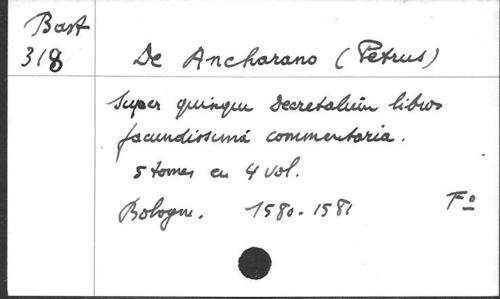 Bast
318
De Ancharano (Petrus)
Super quinque Decretalium libros
facundissima commentaria.
5 tomes en 4 vol.
Bologne. 1580-1581 Fº